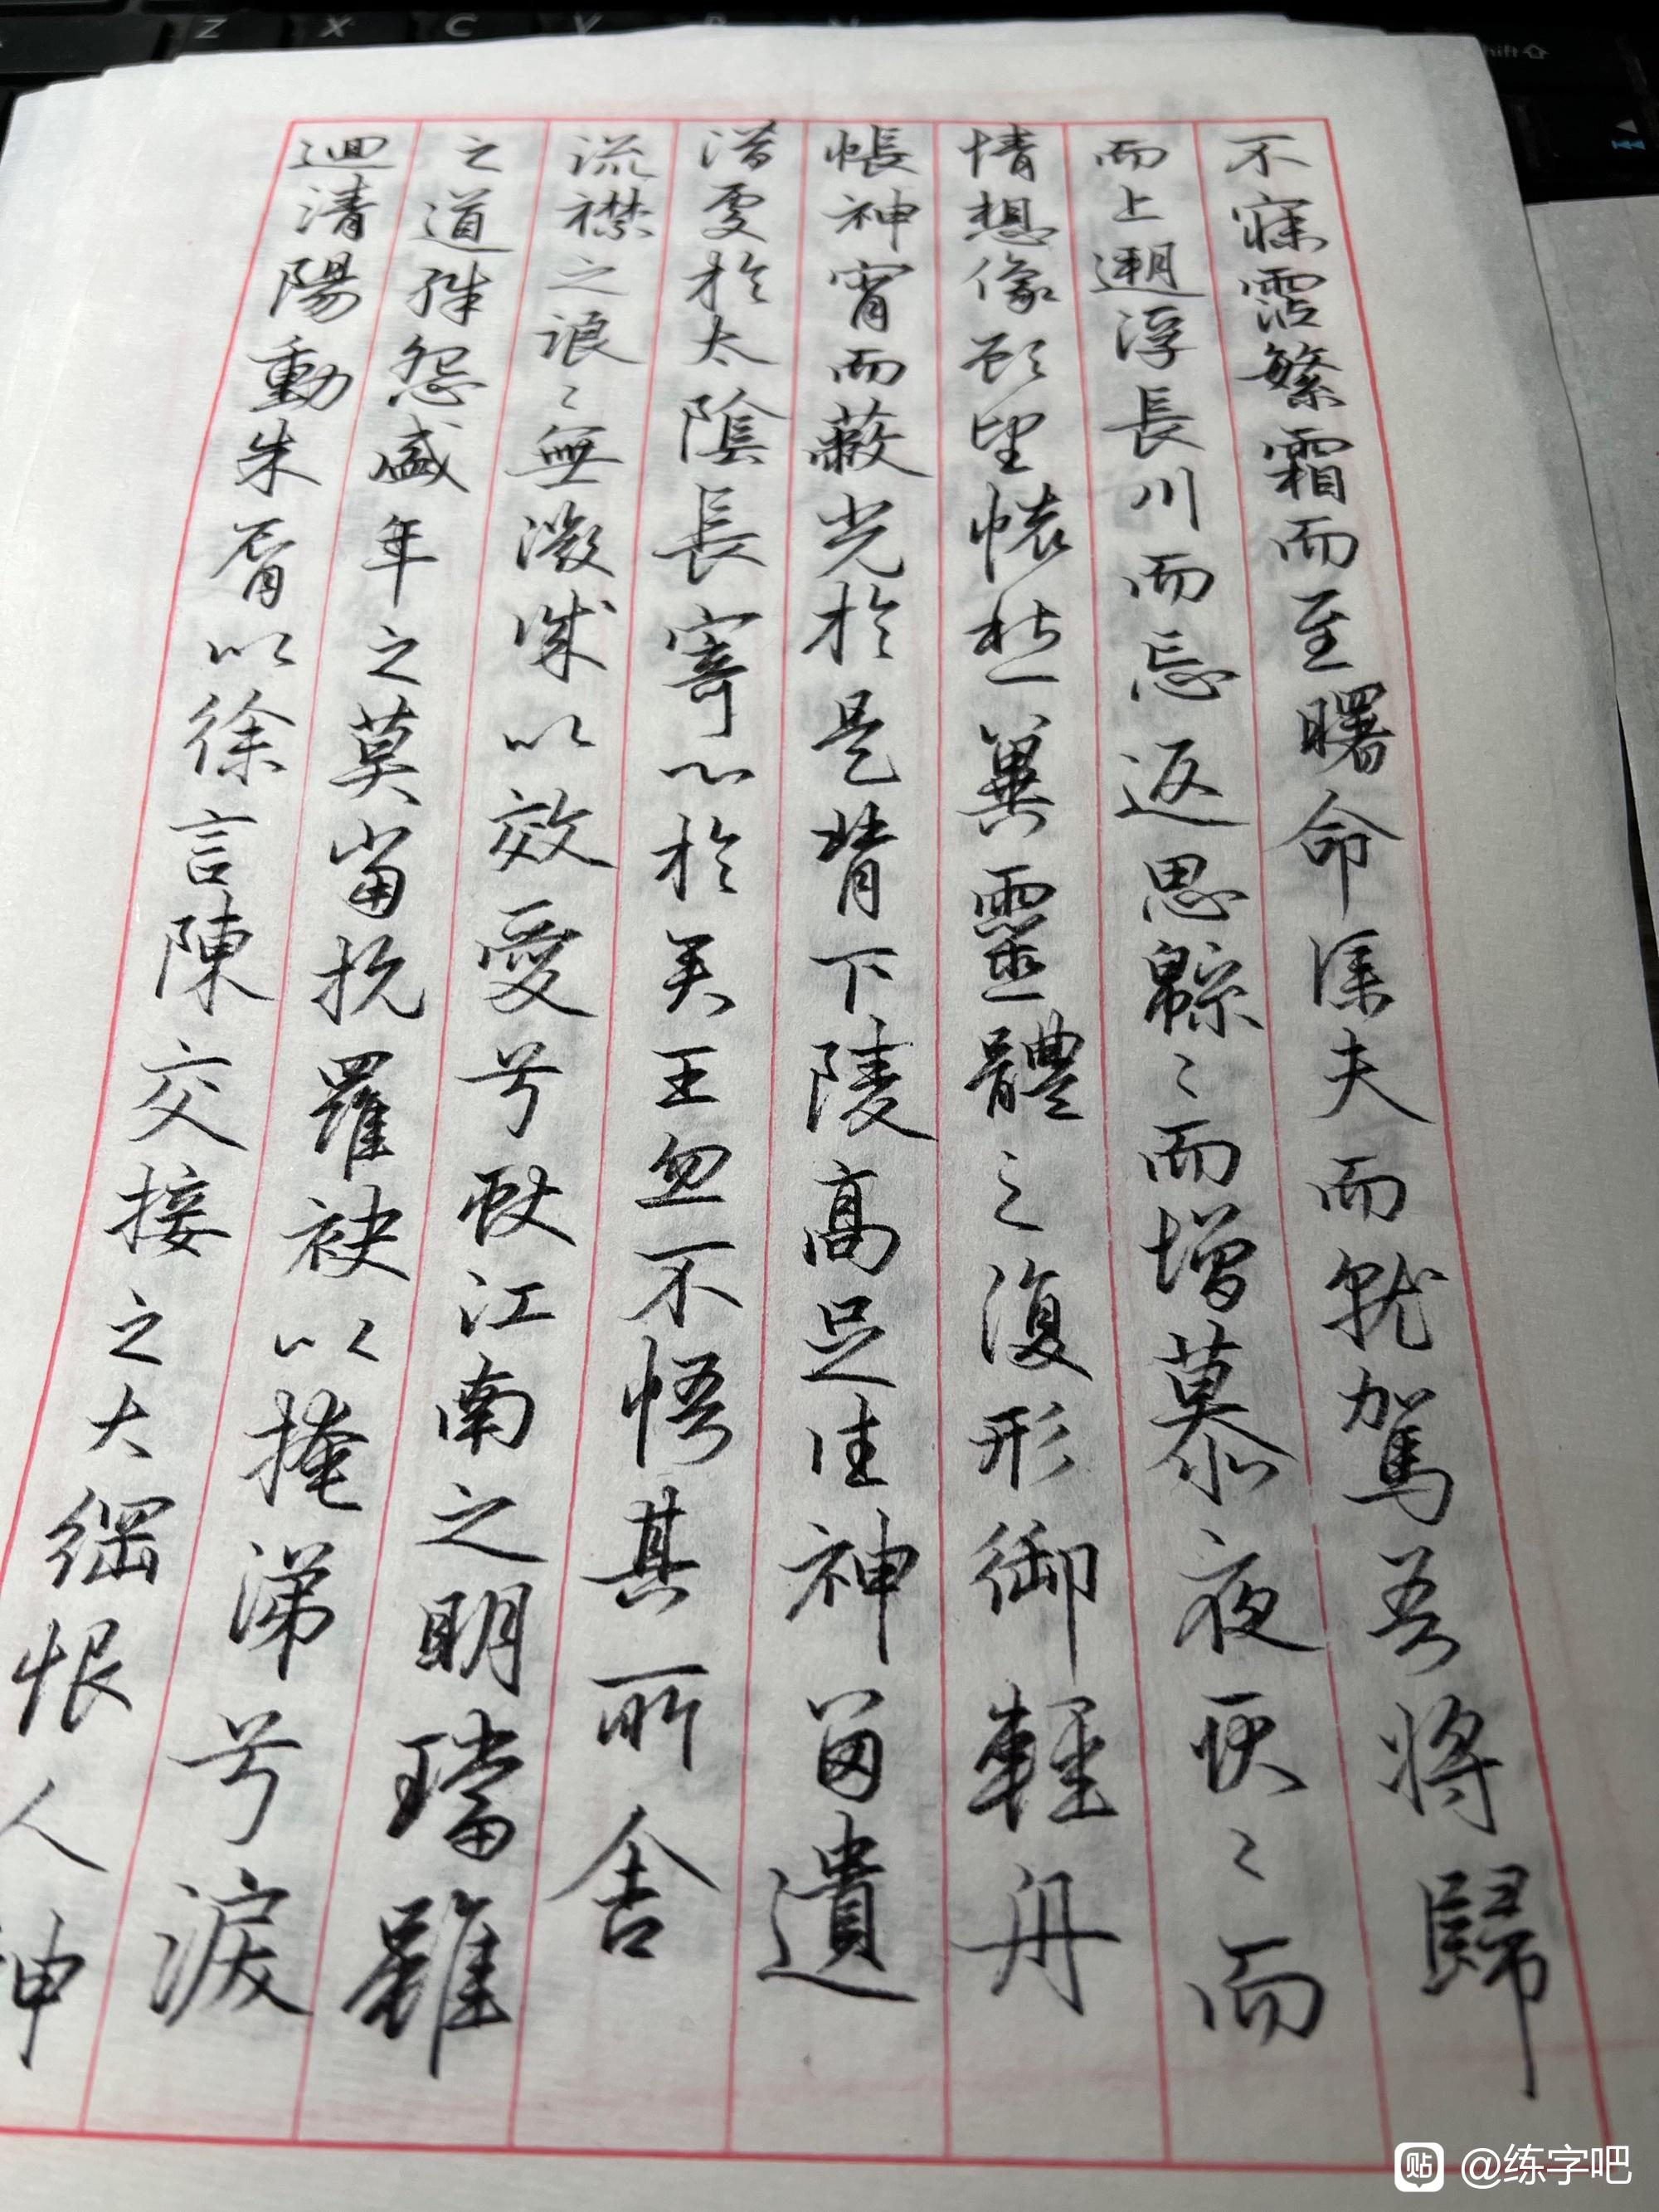 不寐霑繁霜而至曙命僕夫而就駕吾將歸
而上遡浮長川而忘返思緜〻而增慕夜耿〻而
情想像顧望懷愁冀靈體之復形御輕舟
悵神宵而蔽光於是背下陵高足往神留遺
潛處於太陰長寄心於君王忽不悟其所舍
流襟之浪〻無微誠以效愛兮獻江南之明璫雖
之道殊怨盛年之莫當抗羅袂以掩涕兮淚
迴清陽動朱脣以徐言陳交接之大綱恨人神
Z X C V
shift
贴 @练字吧